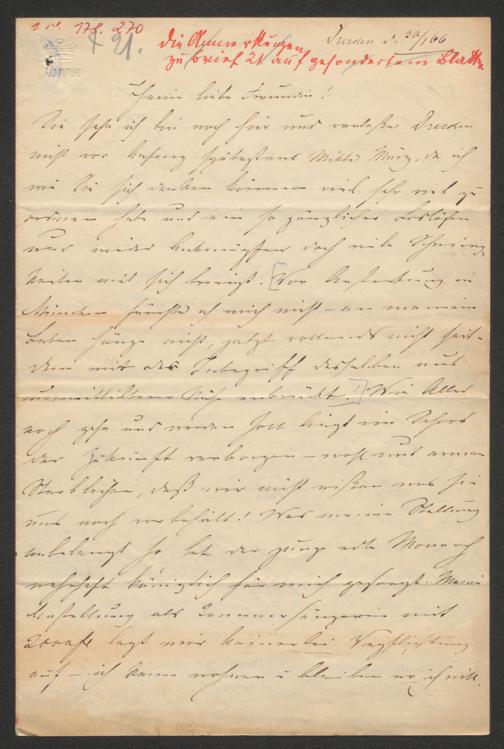 178. 270
21.
die Anmerkungen
zu Brief 21 auf gesondertem Blatt
Dresden d. 30/1 66
Meine liebe Freundin!
Sie sehn ich bin noch hier und verlasse Dresden
nicht vor Anfang spätestens Mitte März, da ich
wie Sie sich denken können viel sehr viel zu
ordnen habe und ein so gänzliches Loslösen
und wieder Anknüpfen doch viele Schwierig
keiten mit sich bringt. [Vor Ansteckung in
München fürchte ich mich nicht – an meinem
Leben hänge nicht, jetzt vollends nicht seit-
dem mir der Inbegriff desselben aus
unmittelbarer Nähe entrückt!] Wie Alles
noch gehn und werden soll liegt im Schoos
der Zukunft verborgen – wohl uns armen
Sterblichen, daß wir nicht wissen was sie
uns noch vorbehält! Was meine Stellung
anbelangt so hat der junge edle Monarch
wahrhaft königlich für mich gesorgt. Meine
Anstellung als Kammersängerin mit
2000 fl legt mir keinerlei Verpflichtung
auf – ich kann wohnen u bleiben wo ich will.